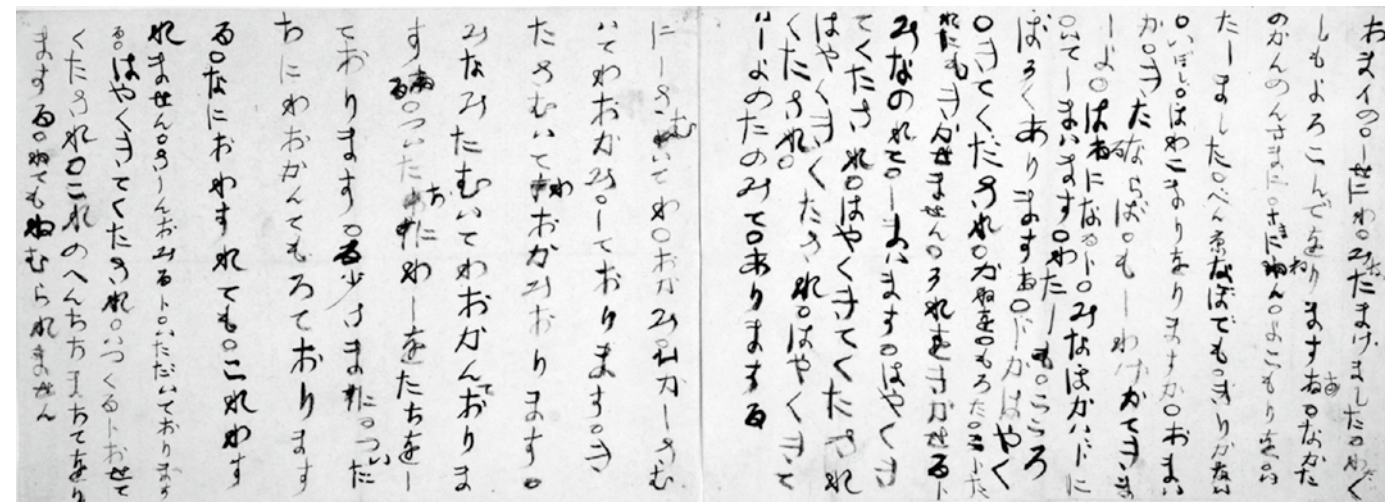 おまイの。しせにわ。みなたまけました。わたく
しもよろこんでをりまする。なかた
のかんのんさまに。さまにねん。よこもりを。い
たしました。べん京なぼでも。きりかない
。いぼし。ほわこまりをりますか。おまい
か。きたならば。もしわけかてきま
しよ。はるになるト。みなほかいドに
。いてしまいます。わたしも。こころ
ぼそくありまする。ドか。はやく
。きてくだされ。かねを。もろた。こトた
れにもきかせません。それをきかせるト
みなのれて。しまいます。はやくき
てくたされ。はやくきてくたされ
はやくきてくたされ。はやくきて
くたされ。
いしよのたのみて。ありまする
にしさむいてわ。おかみ。ひかしさむ
いてわおかみ。しております。き
たさむいてわおかみおります。
みなみたむいてわおかんておりま
する。ついたちにわしをたちをし
ております。る少さまに。ついた
ちにわおかんてもろております
る。なにおわすれても。これわす
れません。さしんおみるト。いただいておりま
る。はやくきてくたされ。いつくるトおせて
くたされ。これのへんちちまちてをり
まする。ねてもねむられません